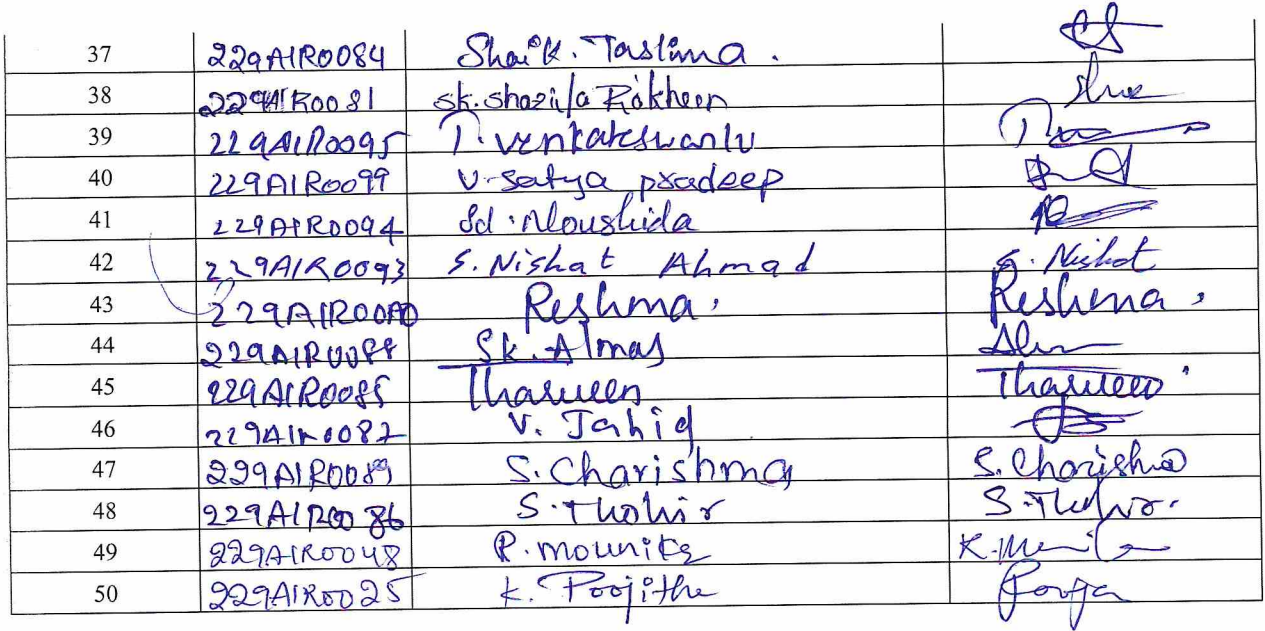 37 229A1R0084 Shaik. Taslima.
38 229A1R0081 sk. shazila Rakheen
39 229A1R0095 T. venkateswarlu
40 229A1R0099 V. satya pradeep
41 229A1R0094 Sd. Noushida
42 229A1R0093 S. Nishat Ahmad S. Nishat
43 229A1R00A0 Reshma. Reshma.
44 229A1R0088 Sk. Almas
45 229A1R0085 Tharween Tharween
46 229A1R0087 V. Jahid
47 229A1R0089 S. Charishma S. Charishma
48 229A1R0086 S. Thohir S. Thohir.
49 229A1R0048 P. mounika
50 229A1R0025 K. Poojitha Pooja